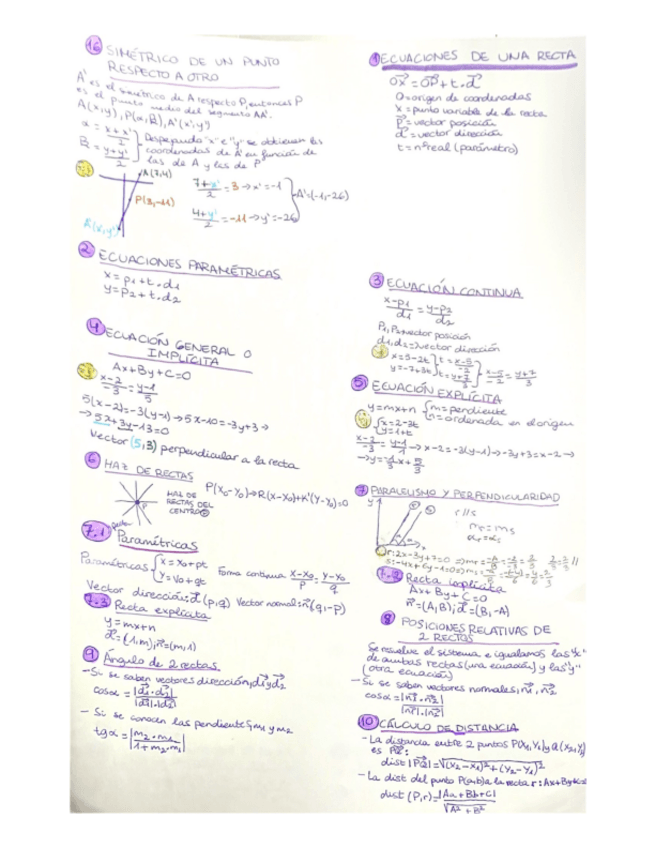 16 SIMÉTRICO DE UN PUNTO
RESPECTO A OTRO
A' es el simétrico de A respecto P, entonces P
es el punto medio del segmento AA'.
A(x,y), P(α,B), A'(x',y')
α = x+x'/2
B = y+y'/2
Despejando "x'" e "y'" se obtienen las
coordenadas de A' en función de
las de A y las de P
A(7,4)
P(3,-11)
A'(x,y')
7+x'/2 = 3 → x' = -1
4+y'/2 = -11 → y' = -26
A'(-1,-26)
1 ECUACIONES DE UNA RECTA
OX = OP + t · d
O = origen de coordenadas
X = punto variable de la recta
P = vector posición
d = vector dirección
t = nº real (parámetro)
2 ECUACIONES PARAMÉTRICAS
x = p1 + t · d1
y = p2 + t · d2
3 ECUACIÓN CONTINUA
x-p1/d1 = y-p2/d2
P1, P2 = vector posición
d1, d2 = vector dirección
x = 5-2t
y = -7+3t
t = x-5/-2
t = y+7/3
x-5/-2 = y+7/3
4 ECUACIÓN GENERAL O
IMPLÍCITA
Ax+By+C=0
x-2/-3 = y-1/5
5(x-2) = -3(y-1) → 5x-10 = -3y+3 →
→ 5x+3y-13=0
Vector (5,3) perpendicular a la recta
5 ECUACIÓN EXPLÍCITA
y = mx+n
m = pendiente
n = ordenada en el origen
x = 2-3t
y = 1+t
x-2/-3 = y-1/1 → x-2 = -3(y-1) → -3y+3 = x-2 →
→ y = -1/3 x + 5/3
6 HAZ DE RECTAS
HAZ DE
RECTAS DEL
CENTRO P
P(X0-Y0) → K(X-X0)+K'(Y-Y0)=0
7 PARALELISMO Y PERPENDICULARIDAD
r//s
mr = ms
αr = αs
r: 2x-3y+7=0
s: -4x+6y-1=0
7.1 Paramétricas
Paramétricas
x = x0+pt
y = y0+qt
Forma continua x-x0/p = y-y0/q
Vector dirección: d (p,q) Vector normal: n (q,-p)
7.2 Recta implícita
Ax+By+C=0
n = (A,B); d = (B,-A)
7.3 Recta explícita
y = mx+n
d = (1,m); n = (m,1)
8 POSICIONES RELATIVAS DE
2 RECTAS
Se resuelve el sistema e igualamos las "x"
de ambas rectas (una ecuación) y las "y"
(otra ecuación)
9 Ángulo de 2 rectas
- Si se saben vectores dirección, d1 y d2
cosα = |d1·d2|/|d1|·|d2|
- Si se conocen las pendientes, m1 y m2
tgα = |m2-m1/1+m2·m1|
- Si se saben vectores normales, n1, n2
cosα = |n1·n2|/|n1|·|n2|
10 CÁLCULO DE DISTANCIA
- La distancia entre 2 puntos P(X1,Y1) y Q(X2,Y2)
es PQ:
dist |PQ| = √(X2-X1)²+(Y2-Y1)²
- La dist del punto P(a,b) a la recta r: Ax+By+C=0
dist (P,r) = |Aa+Bb+C|/√A²+B²